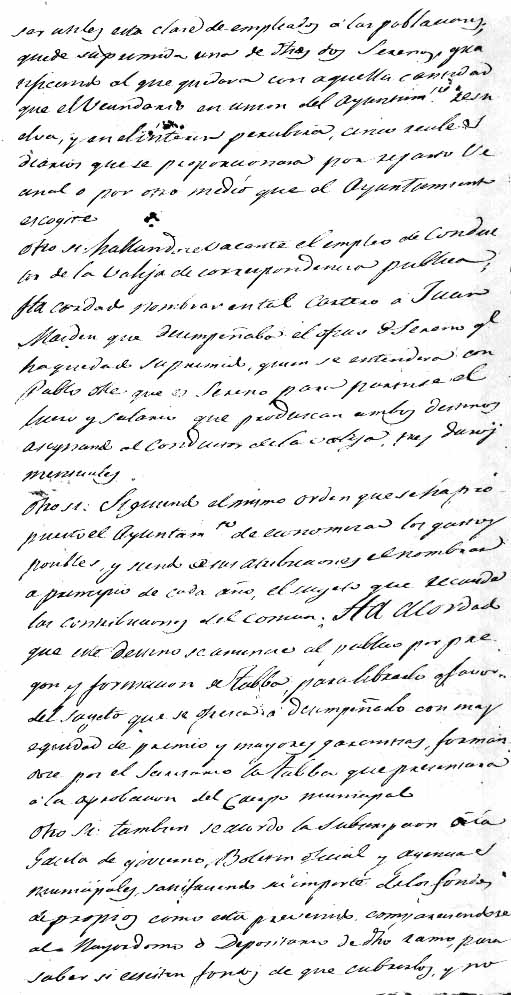 ser utiles esta clase de empleados á las poblaciones,
quede suprimida una de dhas dos Serenos, gra
tificando al que quedara con aquella cantidad
que el Vecindario en union del Ayuntimto resu
elva, y en el interin percibira, cinco reales
diarios que se proporcionara por reparto Ve
cinal o por otro medio que el Ayuntamiento
escogite
Otro si: hallandose vacante el empleo de Conduc
tor de la valija de correspondencia publica,
Ha cordado nombrar en tal Cartero á Juan
que desempeñaba el de Sereno ql
ha quedado suprimido, quien se entendera con
Pablo que es Sereno para partirse el
lucro y salario que produzcan ambos destinos
asignando al Conductor de la valija, tres duros
mensuales
Otro si: Siguiendo el mismo orden que se ha pro
puesto el Ayuntamto de economizar los gastos
posibles, y siendo de sus atribuciones el nombrar
a principio de cada año, el sugeto que recauda
las contribuciones del comun. Ha acordado
que este destino se anuncie al publico por pre
gon y formacion de tabba, para librarlo a favor
del sugeto que se ofresca á desempeñarlo con mas
equidad de premio y mayores garantias, forman
dose por el Secretario la tabba que presentara
á la aprobacion del Cuerpo municipal
Otro si: tambien se acordó la subscripcion á la
Gaceta de govierno, Boletin oficial y
municipales, satisfaciendo su importe de los fondos
de propios como esta prevenido,
al Mayordomo ó Depositario de dho ramo, para
saber si ecsisten fondos de que cubrirlos, y no